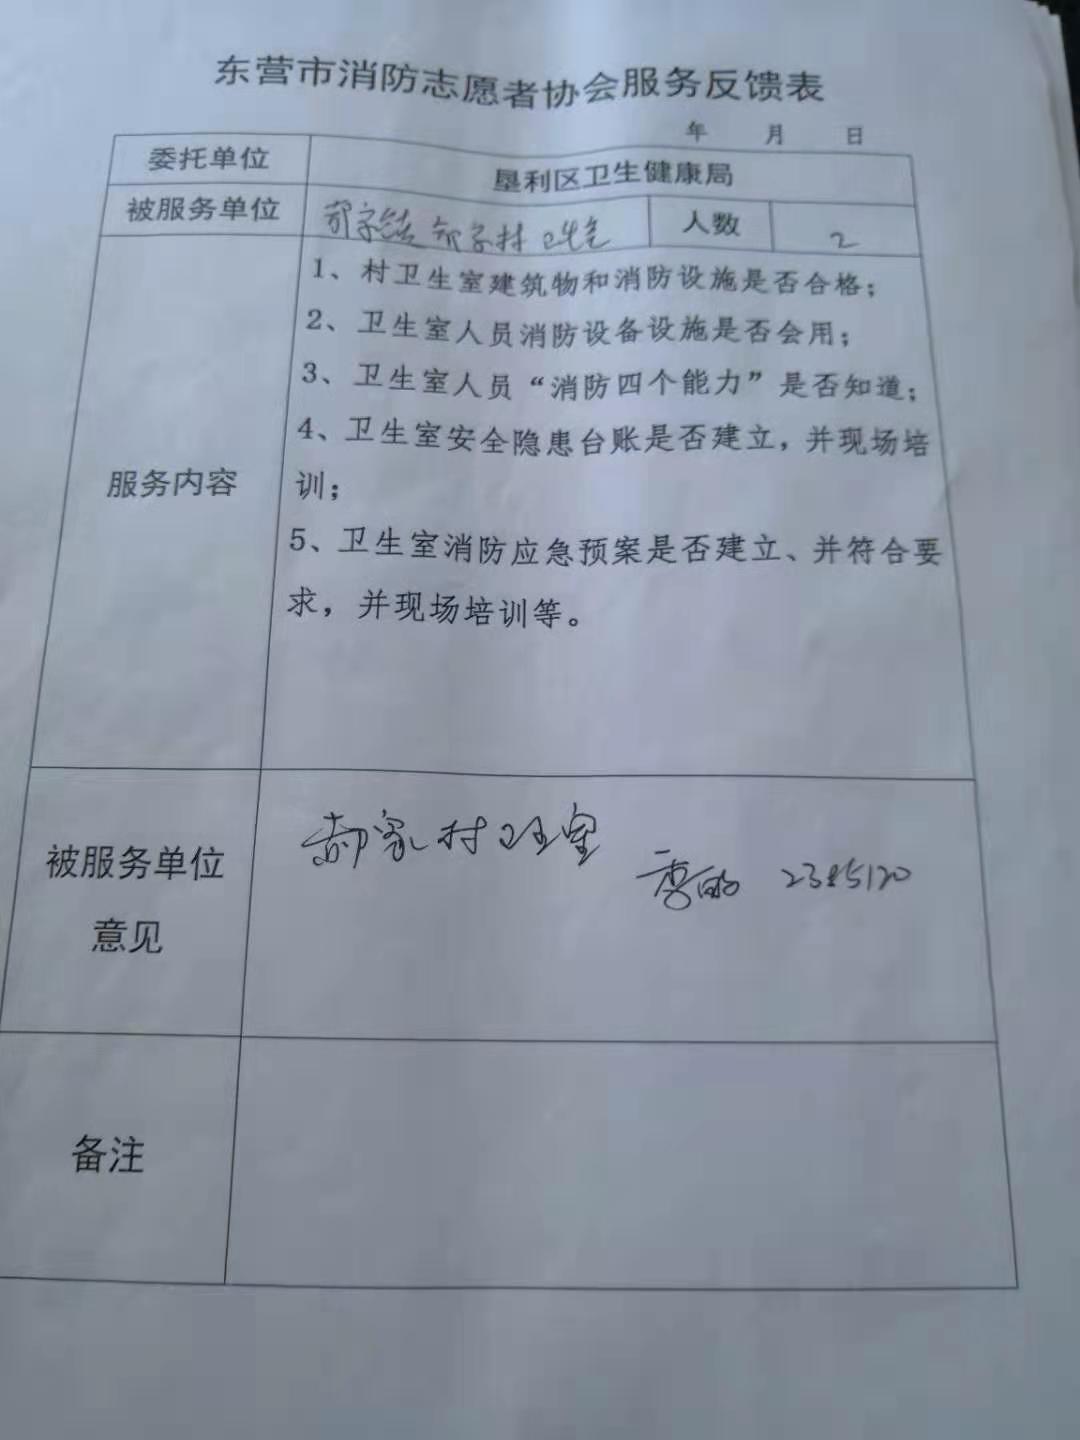 东营市消防志愿者协会服务反馈表
年 月 日
委托单位 垦利区卫生健康局
被服务单位 郝家镇 郝家村 卫生室 人数 2
服务内容
1、村卫生室建筑物和消防设施是否合格；
2、卫生室人员消防设备设施是否会用；
3、卫生室人员“消防四个能力”是否知道；
4、卫生室安全隐患台账是否建立，并现场培
训；
5、卫生室消防应急预案是否建立、并符合要
求，并现场培训等。
被服务单位
意见
郝家村卫生室
2385120
备注